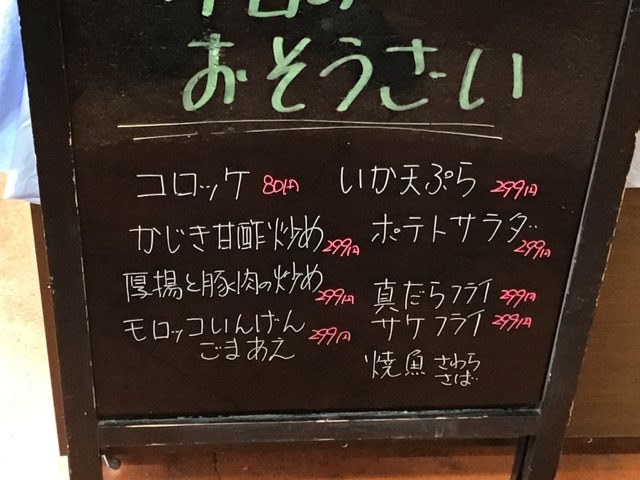 今日の
おそうざい
コロッケ 80円
かじき甘酢炒め 299円
厚揚と豚肉の炒め 299円
モロッコいんげん
ごまあえ 299円
いか天ぷら 299円
ポテトサラダ 299円
真だらフライ 299円
サケフライ 299円
焼魚 さわら
さば